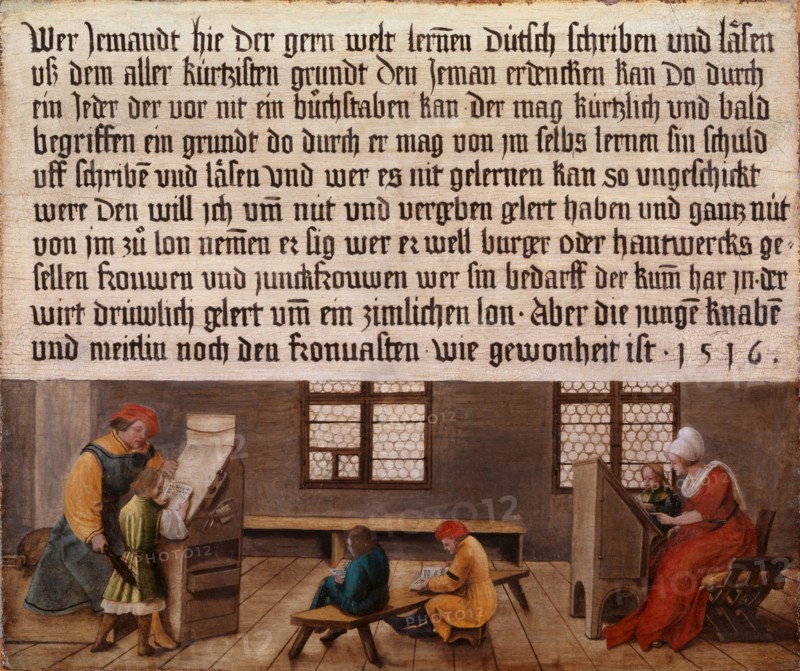 Wer Jemandt hie der gern welt lernen̄ Dütsch schriben und läsen
uß dem aller kürtzisten grundt den Jeman erdencken kan Do durch
ein Jeder der vor nit ein bůchstaben kan · der mag kürtzlich und bald
begriffen ein grundt do durch er mag von jm selbs lernen sin schuld
uff schribē und läsen Und wer es nit gelernen kan so ungeschickt
were Den will jch um̄ nüt und vergeben gelert haben und gantz nüt
von jm zů lon nem̄en er sig wer er well burger oder hantwercks ge-
sellen frouwen und junckfrouwen wer sin bedarff der kum̄ har jn · der
wirt drüwlich gelert um̄ ein zimlichen lon · Aber die jungē knabē
und meitlin noch den fronuasten wie gewonheit ist · 1516 ·
PHOTO12
PHOTO12
PHOTO12
PHOTO12
PHOTO12